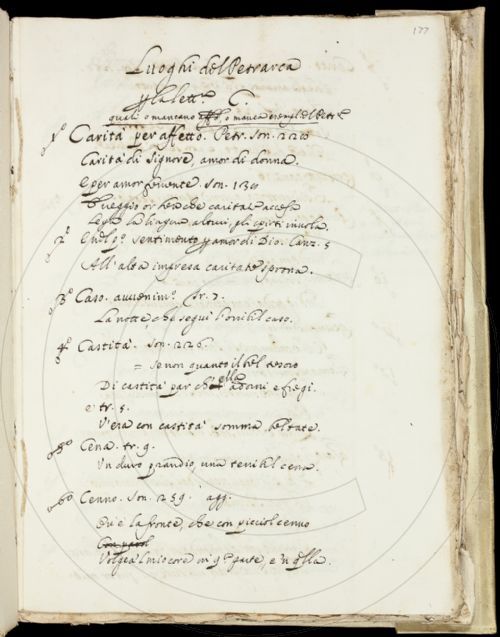 177
Luoghi del Petrarca
p la lett.ª C.
quali o mancano o manca esempl del Petr.
1º Carità per affetto. Petr. son. 220
Carità di Signore, amor di donna.
E per amor son. 130
Veggio or ben che caritate accesa
Lega la lingua altrui, gli spirti invola.
2º sentimento p amor di Dio. Canz. 5
All' alta impresa caritate sprona.
3º Caso. avvenim.º tr. 7.
La notte, che seguì l'orribil caso.
4º Castità. son. 226.
= se non quanto il bel tesoro
Di castità par ch' ella adorni e fregi.
e tr. 5.
V'era con castità somma beltate.
5º Cena. tr. 9.
Un duro prandio, una terribil cena.
6º Cenno. son. 259. agg.
Ov' è la fronte, che con picciol cenno
Volgea 'l mio core in q.ª parte, e 'n q.lla.